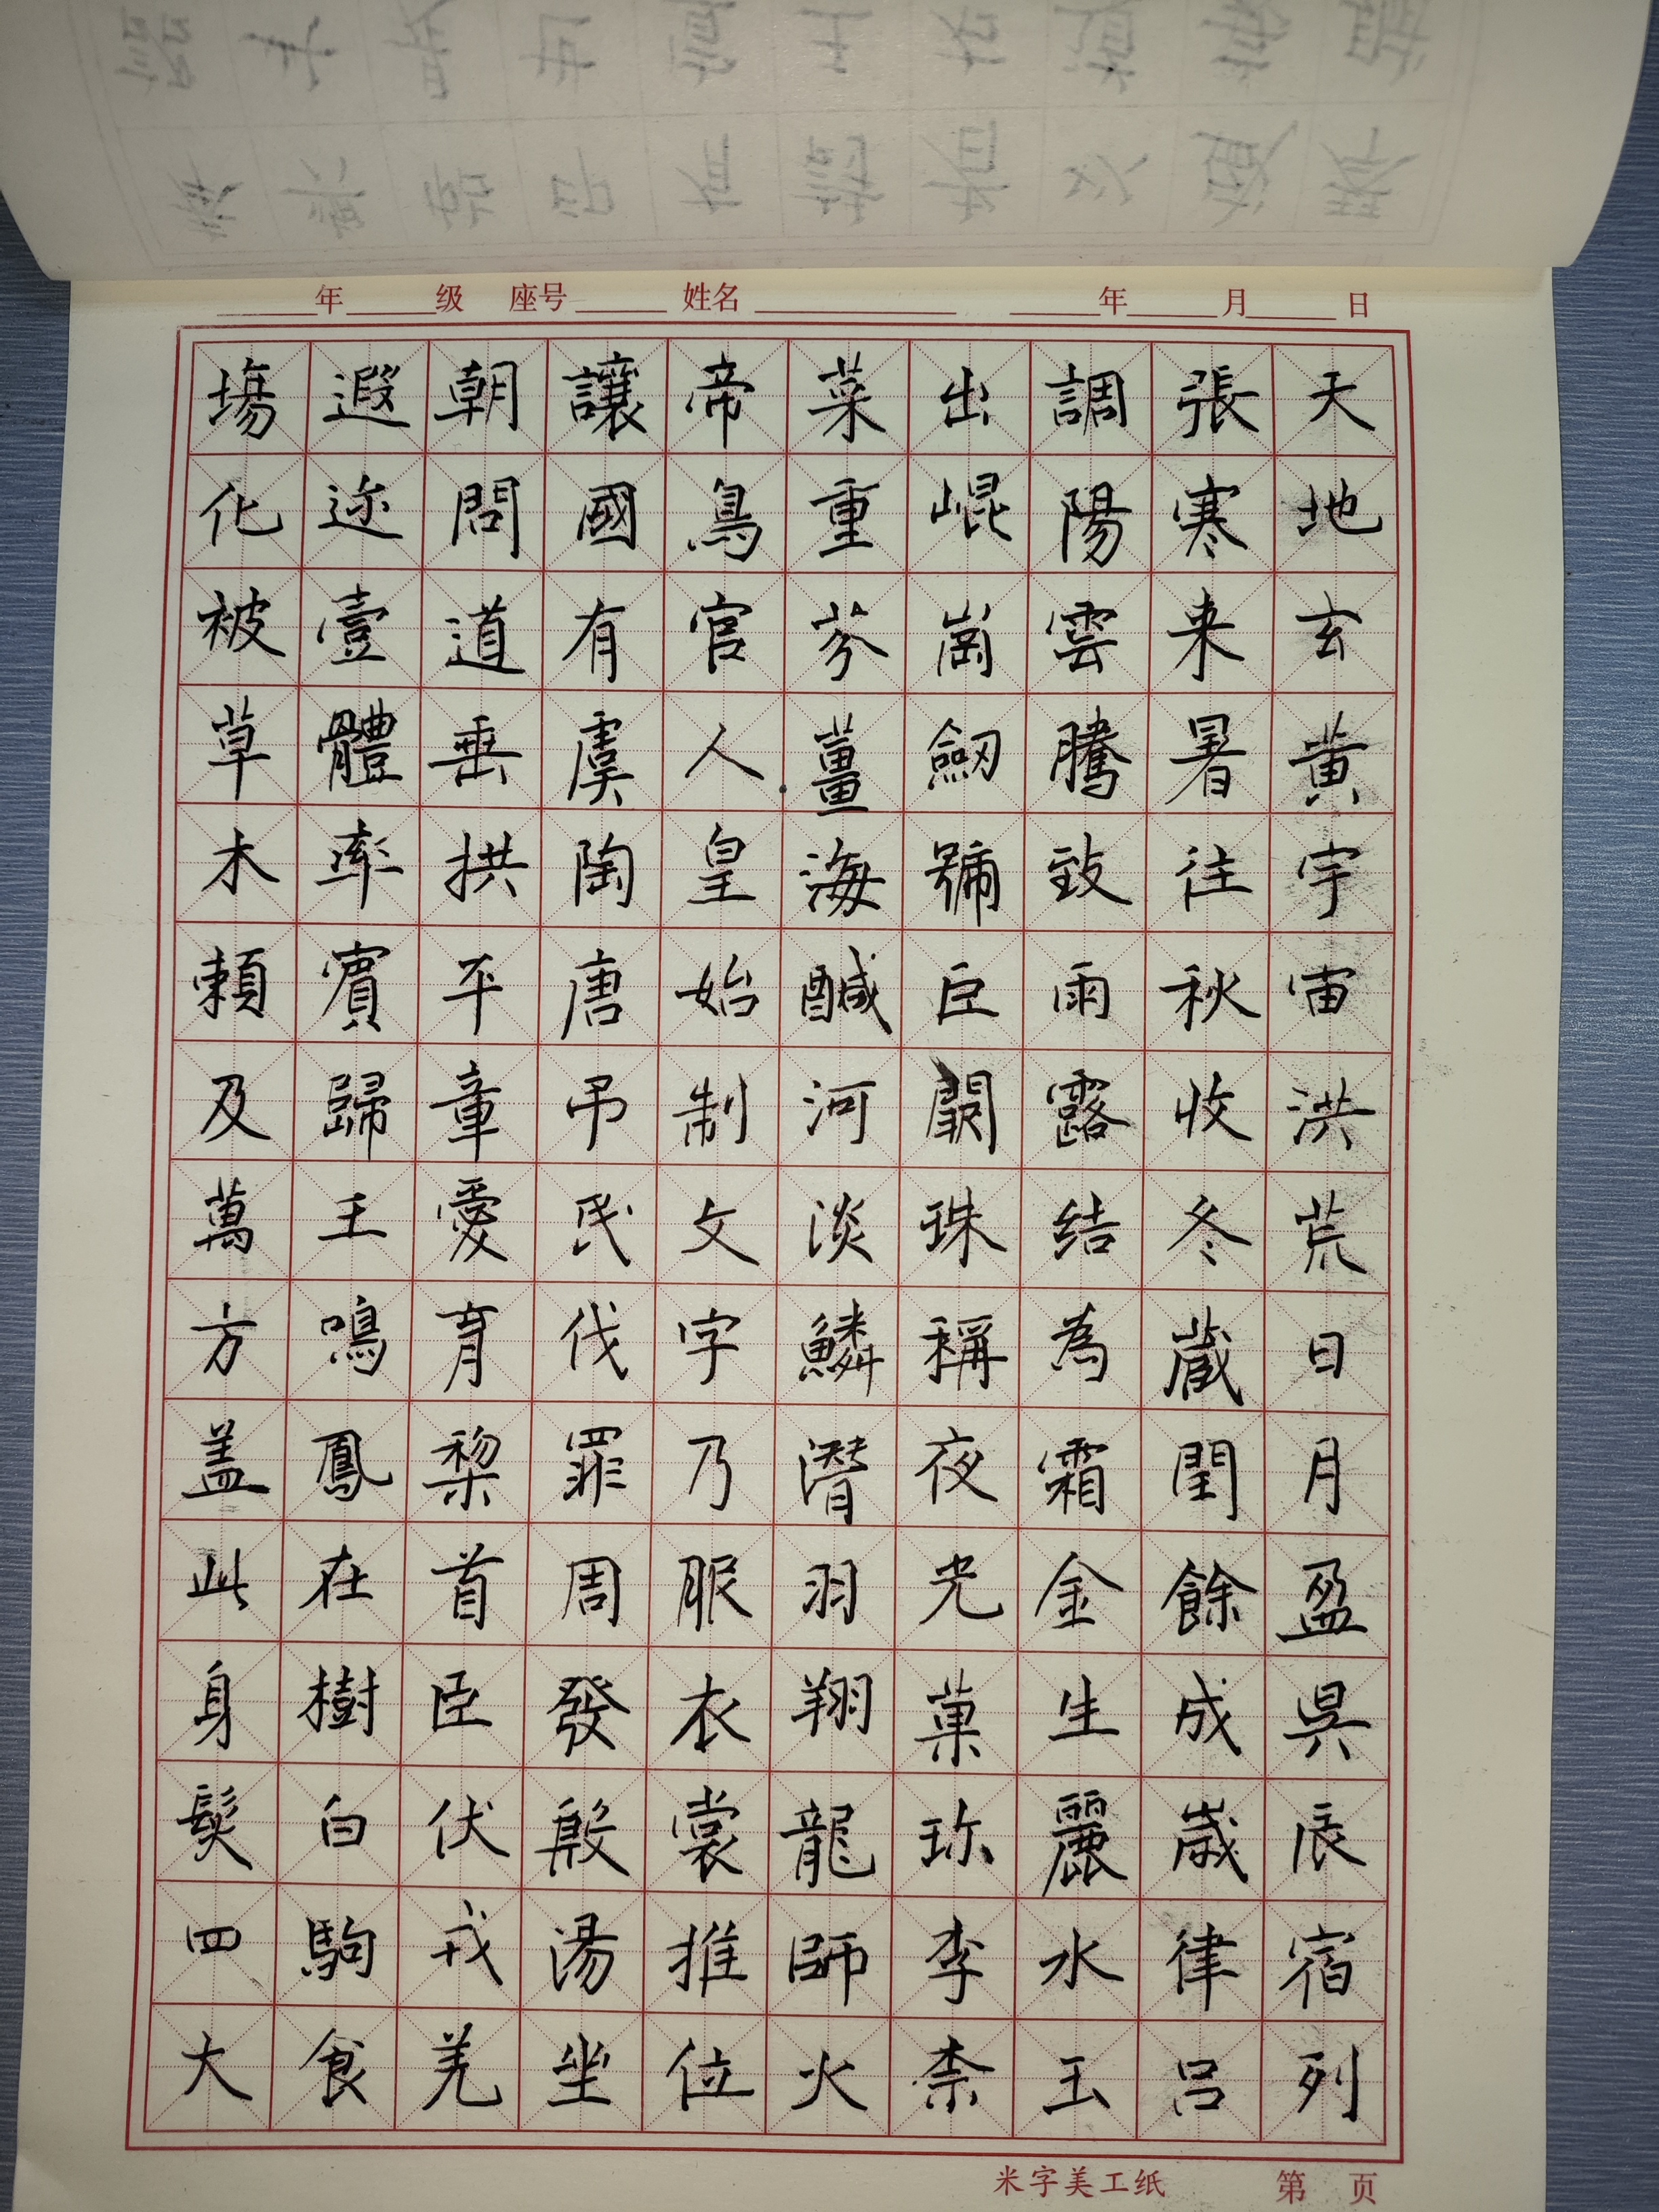 年 级 座号 姓名 年 月 日
天地玄黃宇宙洪荒日月盈昃辰宿列
張寒来暑往秋收冬蔵閏餘成歲律呂
調陽雲騰致雨露结為霜金生麗水玉
出崐崗劔號巨闕珠稱夜光菓珎李柰
菜重芥薑海鹹河淡鱗潛羽翔龍師火
帝鳥官人皇始制文字乃服衣裳推位
讓國有虞陶唐弔民伐罪周發殷湯坐
朝問道垂拱平章愛育黎首臣伏戎羌
遐迩壹體率賓歸王鳴鳳在樹白駒食
場化被草木賴及萬方盖此身髮四大
米字美工纸 第 页